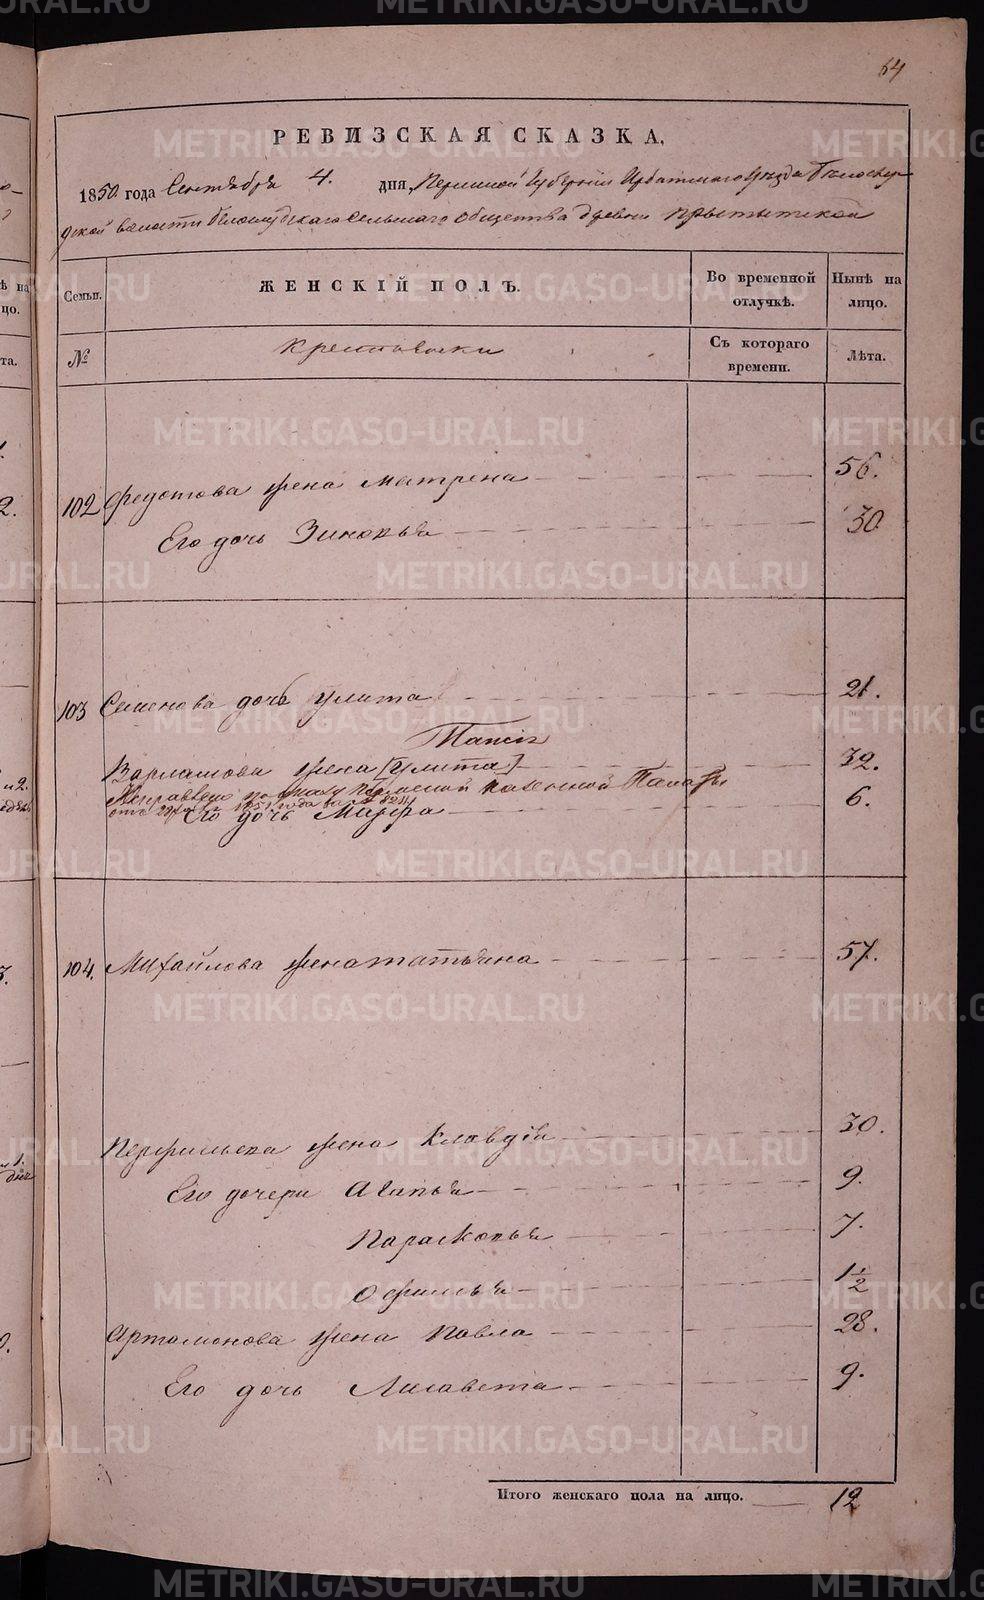 64
РЕВИЗСКАЯ СКАЗКА.
1850 года Сентября 4. дня, Пермской Губернии Ирбитского уѣзда Белослу
дской волости Белослудского Сельского общества деревни
Семьи.
ЖЕНСКІЙ ПОЛЪ.
Во временной отлучкѣ.
Нынѣ на лицо.
№
Крестьянки
Съ котораго времени.
Лѣта.
102 Федотова жена Матрена 56.
Его дочь Зиновья 30
103 Семенова дочь Улита 21.
Таисія
Варламова жена [Улита] 32.
Исправлено по указу Пермской Казенной Палаты
1851 года за №
Его дочь Марфа 6.
104. Михайлова жена татьяна 57.
Перфильева жена Клавдія 30.
Его дочери Агапья 9.
Парасковья 7.
Офимья 1 1/2
Артамонова жена Павла 28.
Его дочь Лисавета 9.
Итого женскаго пола на лицо. 12
METRIKI.GASO-URAL.RU